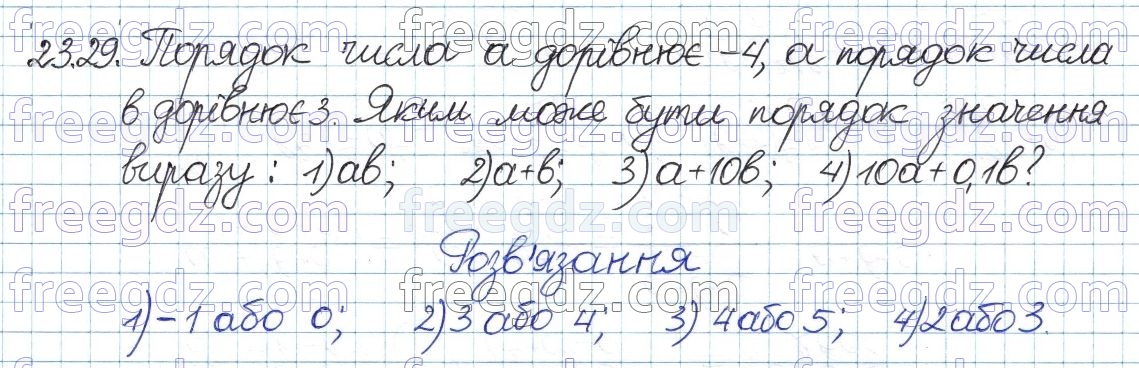 23.29. Порядок числа a дорівнює -4, а порядок числа
в дорівнює 3. Яким може бути порядок значення
виразу: 1) aв; 2) a+в; 3) a+10в; 4) 10a+0,1в?
Розв'язання
1) -1 або 0; 2) 3 або 4; 3) 4 або 5; 4) 2 або 3.
freegdz.com